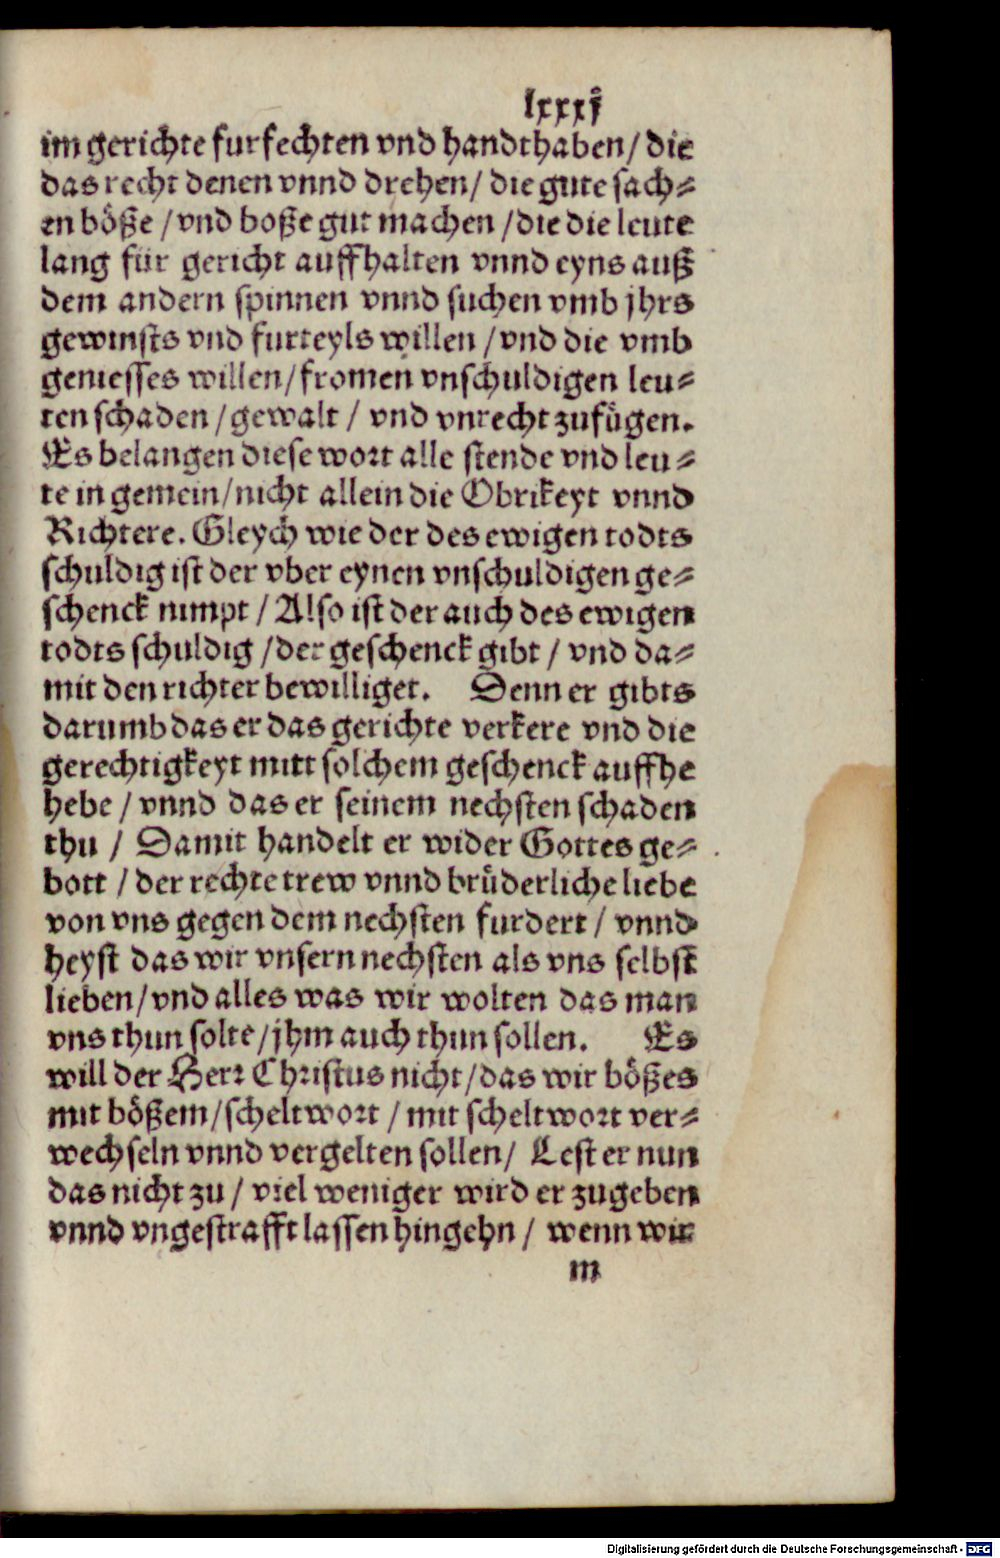 lxxxj
im gerichte furfechten vnd handthaben/ die
das recht denen vnnd drehen/ die gute sach⸗
en böße /vnd boße gut machen /die die leute
lang für gericht auffhalten vnnd eyns auß
dem andern spinnen vnnd suchen vmb jhrs
gewinsts vnd furteyls willen /vnd die vmb
geniesses willen/fromen vnschuldigen leu⸗
ten schaden /gewalt / vnd vnrecht zufügen.
Es belangen diese wort alle stende vnd leu⸗
te in gemein/nicht allein die Obrikeyt vnnd
Richtere. Gleych wie der des ewigen todts
schuldig ist der vber eynen vnschuldigen ge⸗
schenck nimpt / Also ist der auch des ewigen
todts schuldig /der geschenck gibt / vnd da⸗
mit den richter bewilliget. Denn er gibts
darumb das er das gerichte verkere vnd die
gerechtigkeyt mitt solchem geschenck auffhe
hebe / vnnd das er seinem nechsten schaden
thu / Damit handelt er wider Gottes ge⸗
bott / der rechte trew vnnd brüderliche liebe
von vns gegen dem nechsten furdert / vnnd
heyst das wir vnsern nechsten als vns selbst
lieben/vnd alles was wir wolten das man
vns thun solte/jhm auch thun sollen. Es
will der Herr Christus nicht/das wir bößes
mit bößem/scheltwort / mit scheltwort ver⸗
wechseln vnnd vergelten sollen/ Lest er nun
das nicht zu / viel weniger wird er zugeben
vnnd vngestrafft lassen hingehn / wenn wir
m
Digitalisierung gefördert durch die Deutsche Forschungsgemeinschaft - DFG